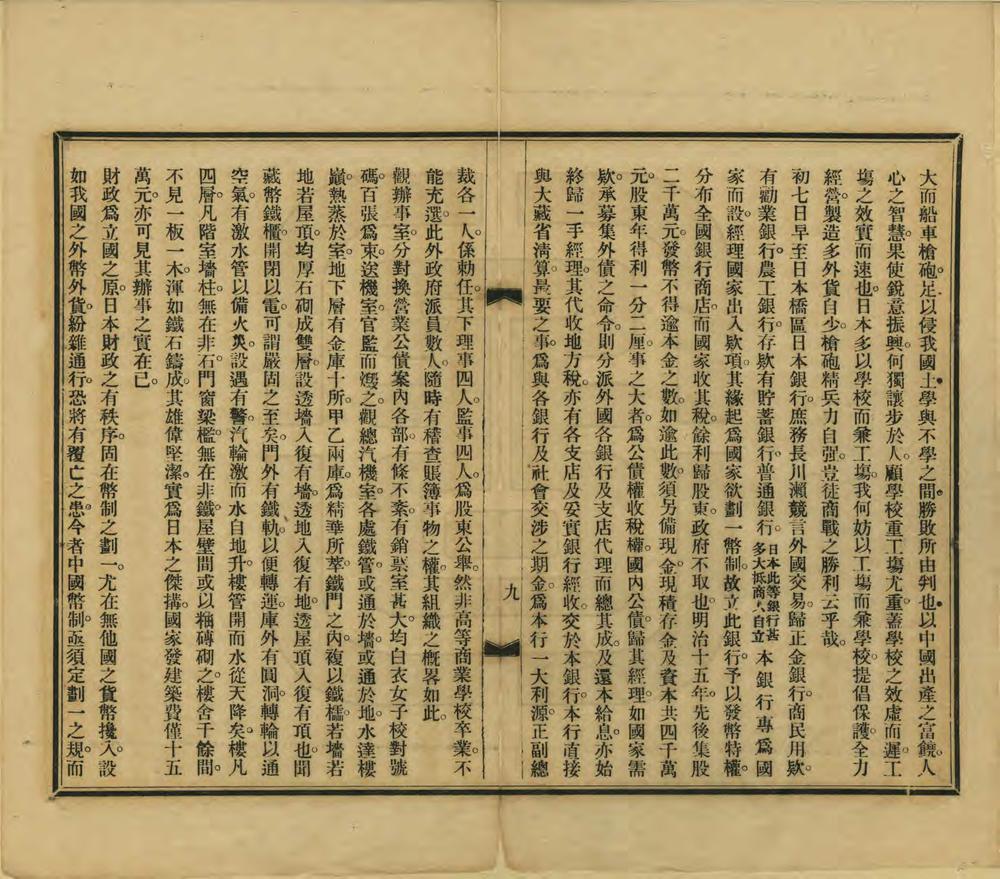 大而船車槍砲。足以侵我國土。學與不學之間。勝敗所由判也。以中國出產之富饒。人
心之智慧。果使銳意振興。何獨讓步於人。顧學校重工塲尤重。蓋學校之效虛而遲。工
塲之效實而速也。日本多以學校而兼工塲。我何妨以工塲而兼學校。提倡保護。全力
經營。製造多。外貨自少。槍砲精。兵力自强。豈徒商戰之勝利云乎哉。
初七日早至日本橋區日本銀行。庶務長川瀨競言外國交易。歸正金銀行。商民用欵。
有勸業銀行。農工銀行。存欵有貯蓄銀行。普通銀行。日本此等銀行甚多大抵商人自立本銀行專爲國
家而設。經理國家出入欵項。其緣起爲國家欲劃一幣制。故立此銀行。予以發幣特權。
分布全國銀行商店。而國家收其稅。餘利歸股東。政府不取也。明治十五年。先後集股
二千萬元。發幣不得逾本金之數。如逾此數。須另備現金。現積存金及資本共四千萬
元。股東年得利一分二厘。事之大者。爲公債權收稅權。國內公債。歸其經理。如國家需
欵。承募集外債之命令。則分派外國各銀行及支店代理而總其成。及還本給息。亦始
終歸一手經理。其代收地方稅。亦有各支店及妥實銀行經收。交於本銀行。本行直接
與大藏省淸算。最要之事。爲與各銀行及社會交涉之期金。爲本行一大利源。正副總
九
裁各一人。係勅任。其下理事四人。監事四人。爲股東公舉。然非高等商業學校卒業。不
能充選。此外政府派員數人。隨時有稽查賬簿事物之權。其組織之槪畧如此。
觀辦事室。分對換營業公債案內各部。有條不紊。有銷票室甚大。均白衣女子校對號
碼。百張爲束。送機室。官監而燬之。觀總汽機室。各處鐵管。或通於墻。或通於地。水達樓
巔。熱蒸於室。地下層有金庫十所。甲乙兩庫。爲精華所萃。鐵門之內。複以鐵櫺。若墻若
地若屋頂。均厚石砌成雙層。設透墻入復有墻。透地入復有地。透屋頂入復有頂也。聞
藏幣鐵櫃。開閉以電。可謂嚴固之至矣。門外有鐵軌。以便轉運。庫外有圓洞。轉輪以通
空氣。有激水管以備火災。設遇有警。汽輪激而水自地升。樓管開而水從天降矣。樓凡
四層。凡階室墻柱。無在非石。門窗梁檻。無在非鐵。屋壁間或以釉磚砌之。樓舍千餘間。
不見一板一木。渾如鐵石鑄成。其雄偉堅潔。實爲日本之傑搆。國家發建築費僅十五
萬元。亦可見其辦事之實在已。
財政爲立國之原。日本財政之有秩序。固在幣制之劃一。尤在無他國之貨幣攙入。設
如我國之外幣外貨。紛雜通行。恐將有覆亡之患。今者中國幣制。亟須定劃一之規。而